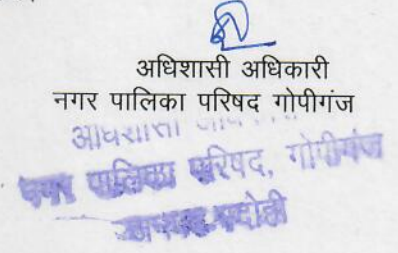 अधिशासी अधिकारी
नगर पालिका परिषद गोपीगंज
अधिशासी
नगर पालिका परिषद, गोपीगंज
जनपद-भदोही